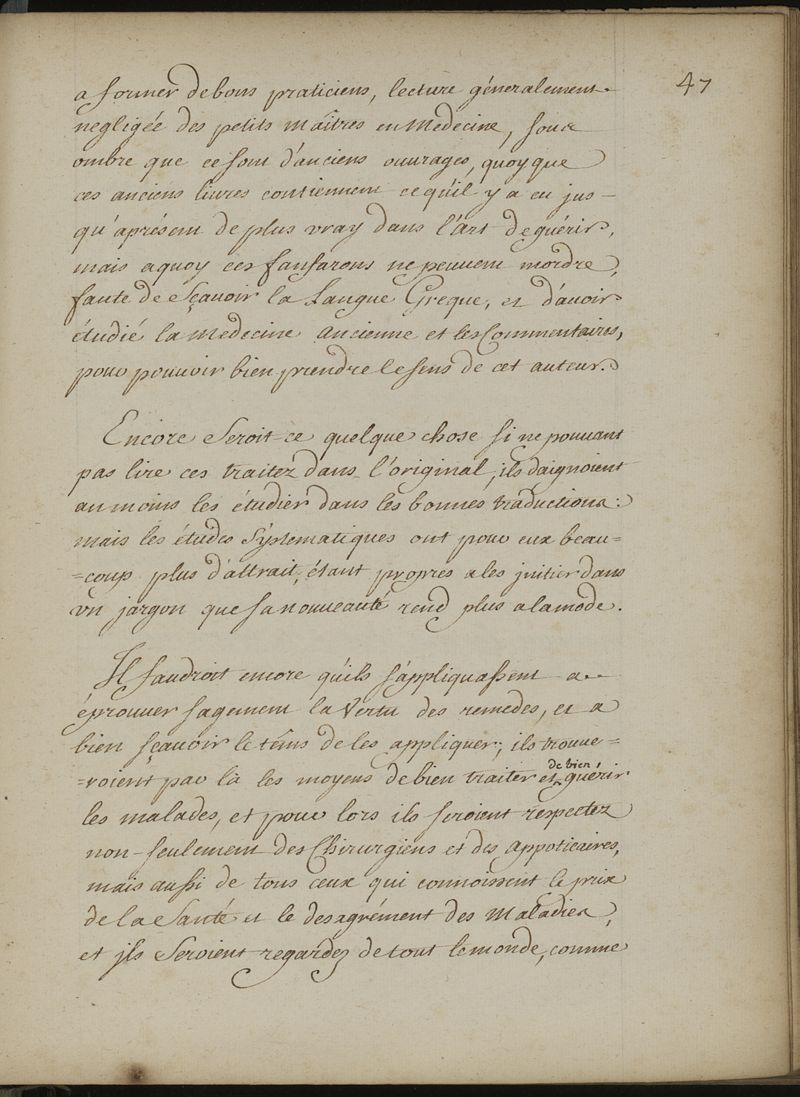 47
a former de bons praticiens, lecture géneralement
negligée des petits maîtres en Medecine, sous
ombre que ce sont d'anciens ouvrages, quoy que
ces anciens livres contiennent ce qu'il y a eu jus-
qu'apresent de plus vray dans l'Art de guérir,
mais aquoy ces fanfarons ne peuvent mordre,
faute de sçavoir la Langue Greque, et d'avoir
étudié la Medecine ancienne et les Commentaires,
pour pouvoir bien prendre le sens de cet auteur.
Encore Seroit-ce quelque chose si ne pouvant
pas lire ces traitez dans l'original, ils daignoient
au moins les étudier dans les bonnes traductions:
mais les études Systematiques ont pour eux beau=
=coup plus d'attrait, étant propres a les initier dans
vn jargon que sa nouveauté rend plus a la mode.
Il faudroit encore qu'ils s'appliquassent a
éprouver sagement la Vertu des remedes, et a
bien sçavoir le têms de les appliquer; ils trouve=
=roient par là les moyens de bien traiter et de bien guérir
les malades, et pour lors ils seroient respectez
non-seulement des Chirurgiens et des Appoticaires,
mais aussi de tous ceux qui connoissent le prix
de la Santé et le desagrément des Maladies,
et jls Seroient regardéz de tout le monde, comme